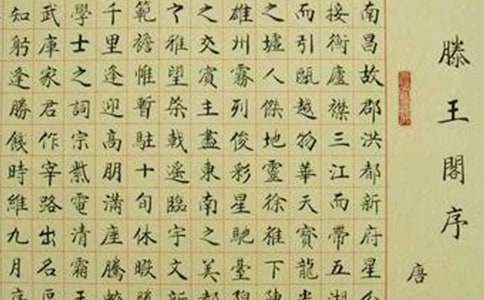 滕王閣序
唐
南昌故郡洪都新府星分
接衡廬襟三江而帶五湖
而引甌越物華天寶龍光
之墟人傑地靈徐孺下陳
雄州霧列俊彩星馳臺隍
之交賓主盡東南之美都
之雅望棨戟遙臨宇文新
範襜帷暫駐十旬休暇勝
千里逢迎高朋滿座騰蛟
學士之詞宗紫電清霜王
武庫家君作宰路出名區
知躬逢勝餞時維九月序